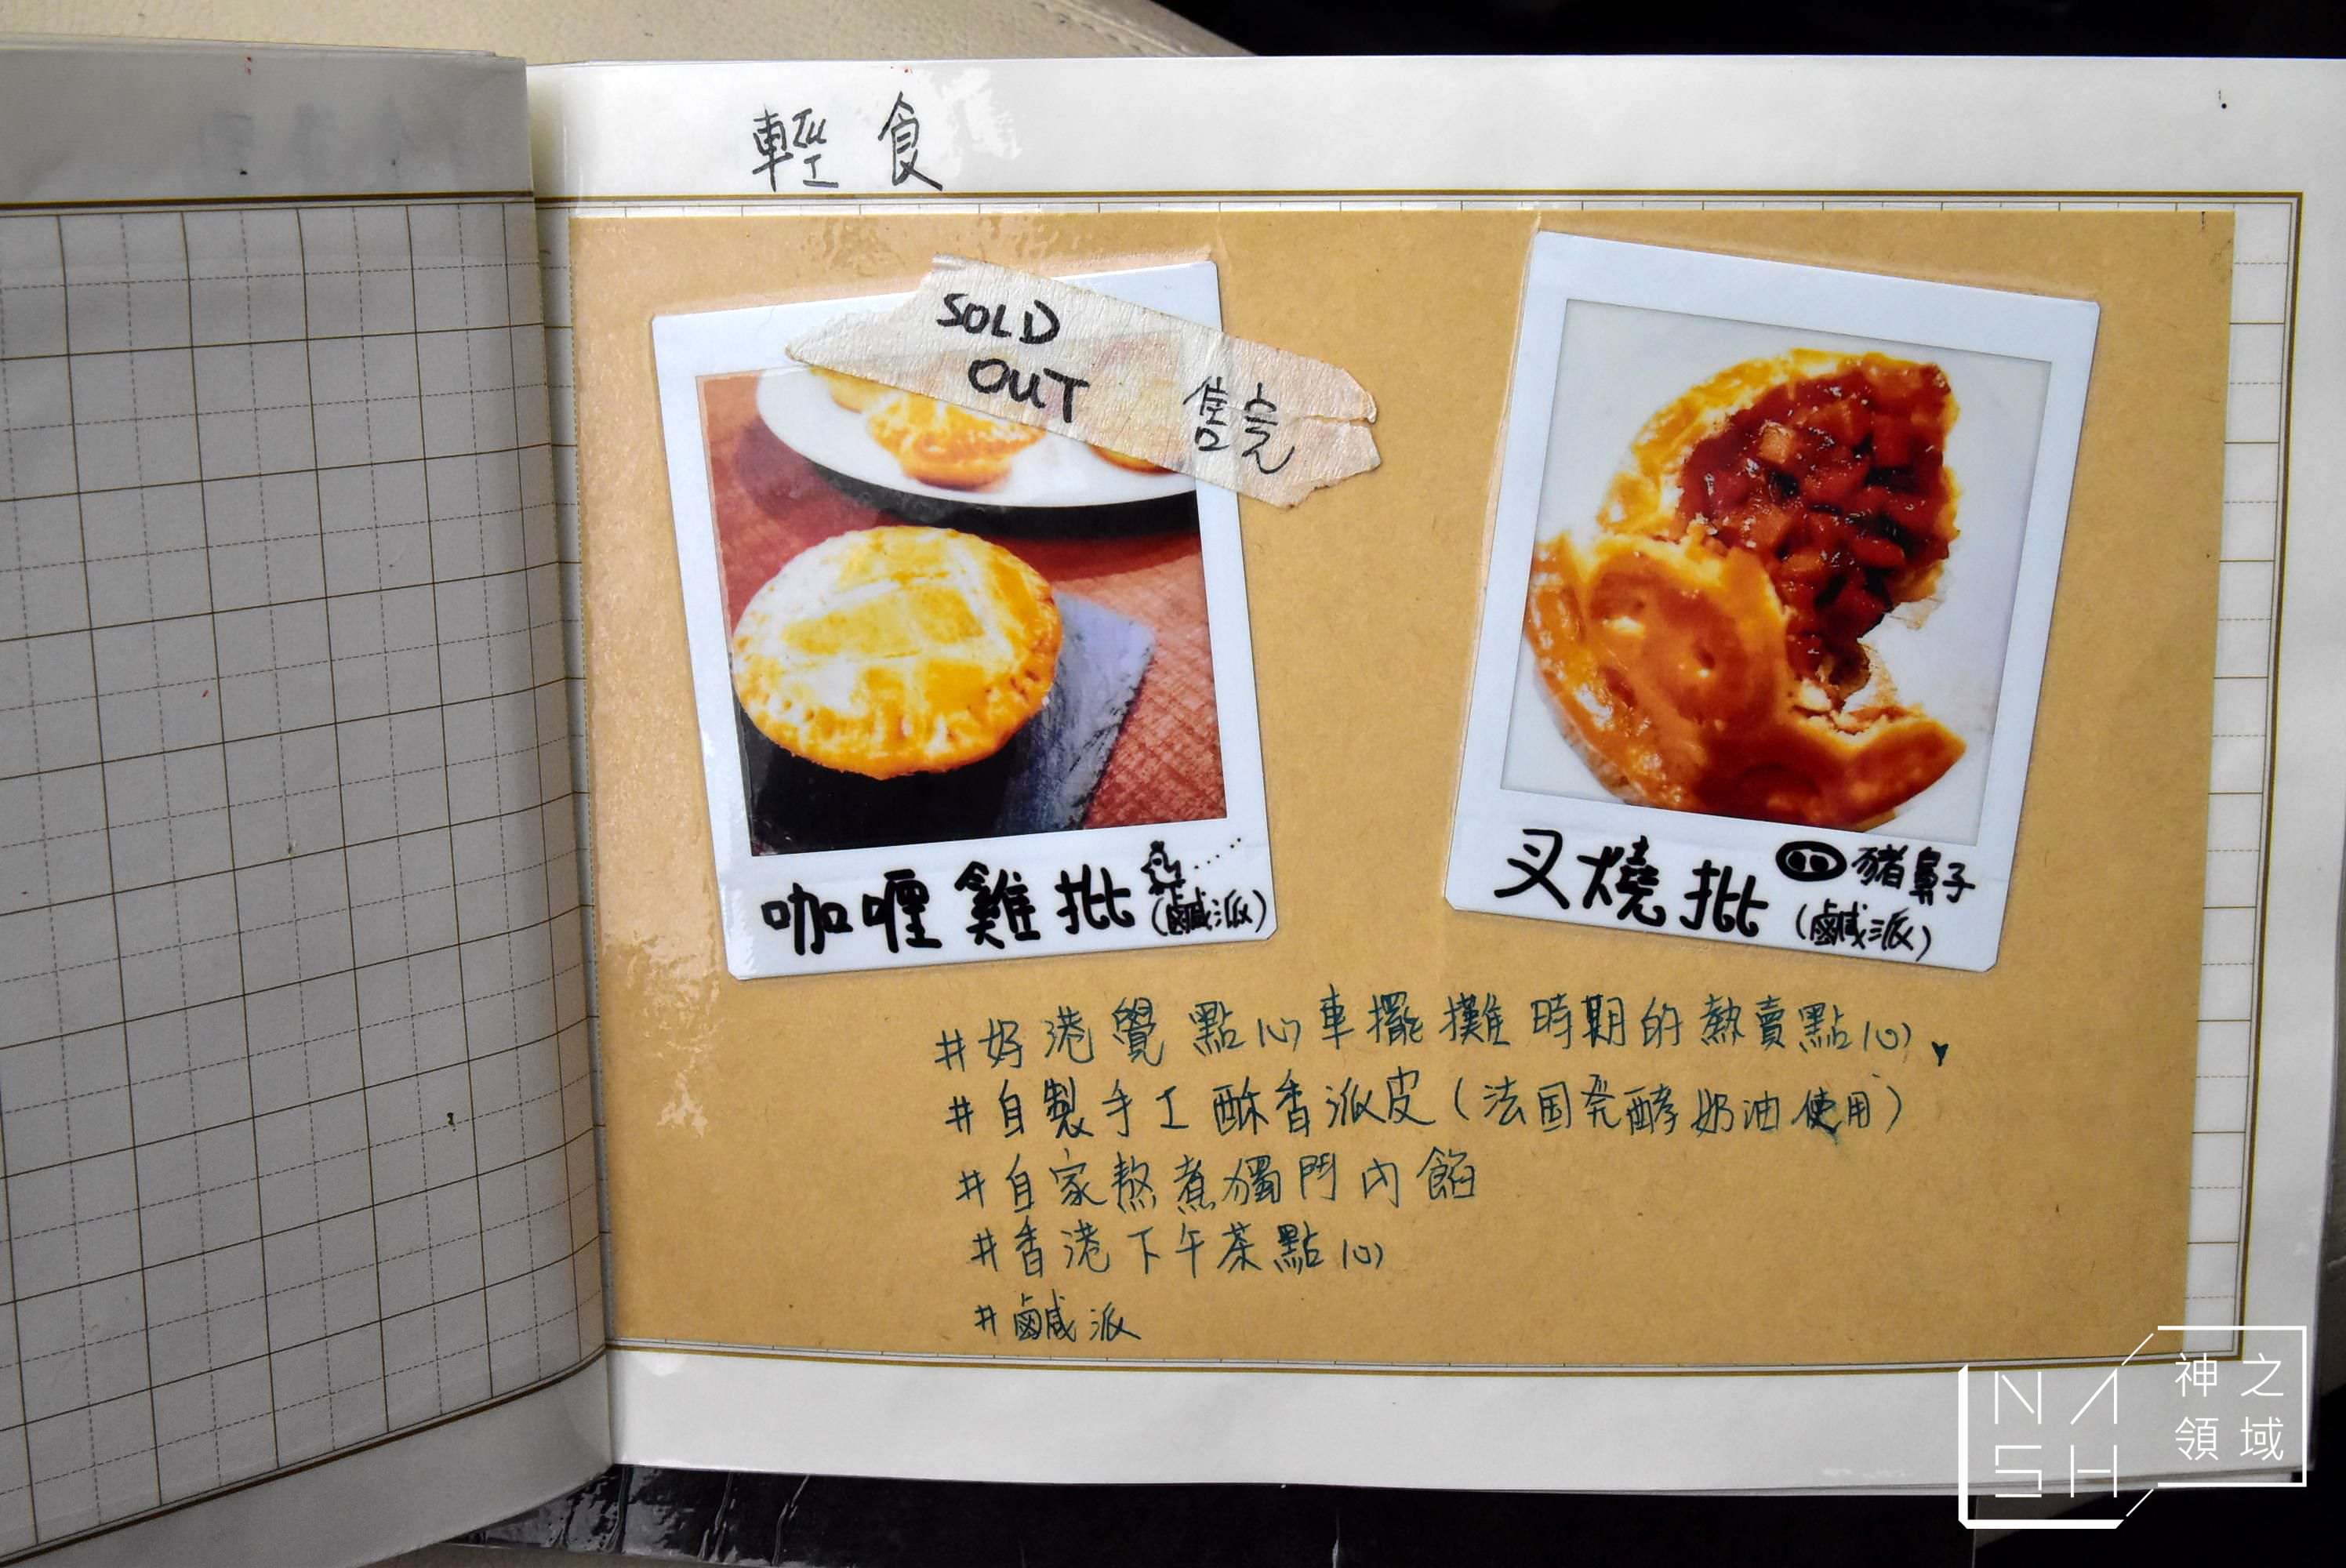 輕食
SOLD
OUT 售完
咖喱雞批
(鹹派)
叉燒批 豬鼻子
(鹹派)
#好港覺點心車擺攤時期的熱賣點心
#自製手工酥香派皮(法国発酵奶油使用)
#自家熬煮獨門內餡
#香港下午茶點心
#鹹派
NASH
神之
領域